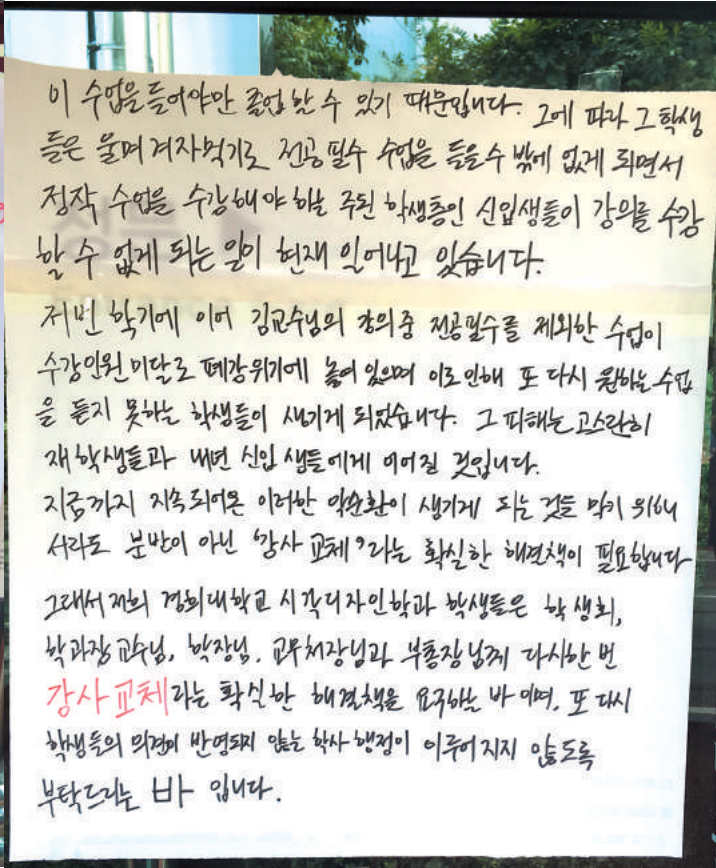 이 수업을 들어야만 졸업 할 수 있기 때문입니다. 그에 따라 그 학생
들은 울며 겨자먹기로 전공 필수 수업을 들을 수 밖에 없게 되면서
정작 수업을 수강해야 하는 주된 학생층인 신입생들이 강의를 수강
할 수 없게 되는 일이 현재 일어나고 있습니다.
저번 학기에 이어 김교수님의 강의 중 전공필수를 제외한 수업이
수강인원 미달로 폐강위기에 놓여 있으며 이로 인해 또 다시 원하는 수업
을 듣지 못하는 학생들이 생기게 되었습니다. 그 피해는 고스란히
재학생들과 내년 신입생들에게 이어질 것입니다.
지금까지 지속되어온 이러한 악순환이 생기게 되는 것을 막기 위해
서라도 분반이 아닌 '강사 교체'라는 확실한 해결책이 필요합니다
그래서 저희 경희대학교 시각디자인학과 학생들은 학생회,
학과장 교수님, 학장님, 교무처장님과 부총장님께 다시한 번
강사교체라는 확실한 해결책을 요구하는 바 이며, 또 다시
학생들의 의견이 반영되지 않는 학사 행정이 이루어지지 않도록
부탁드리는 바 입니다.